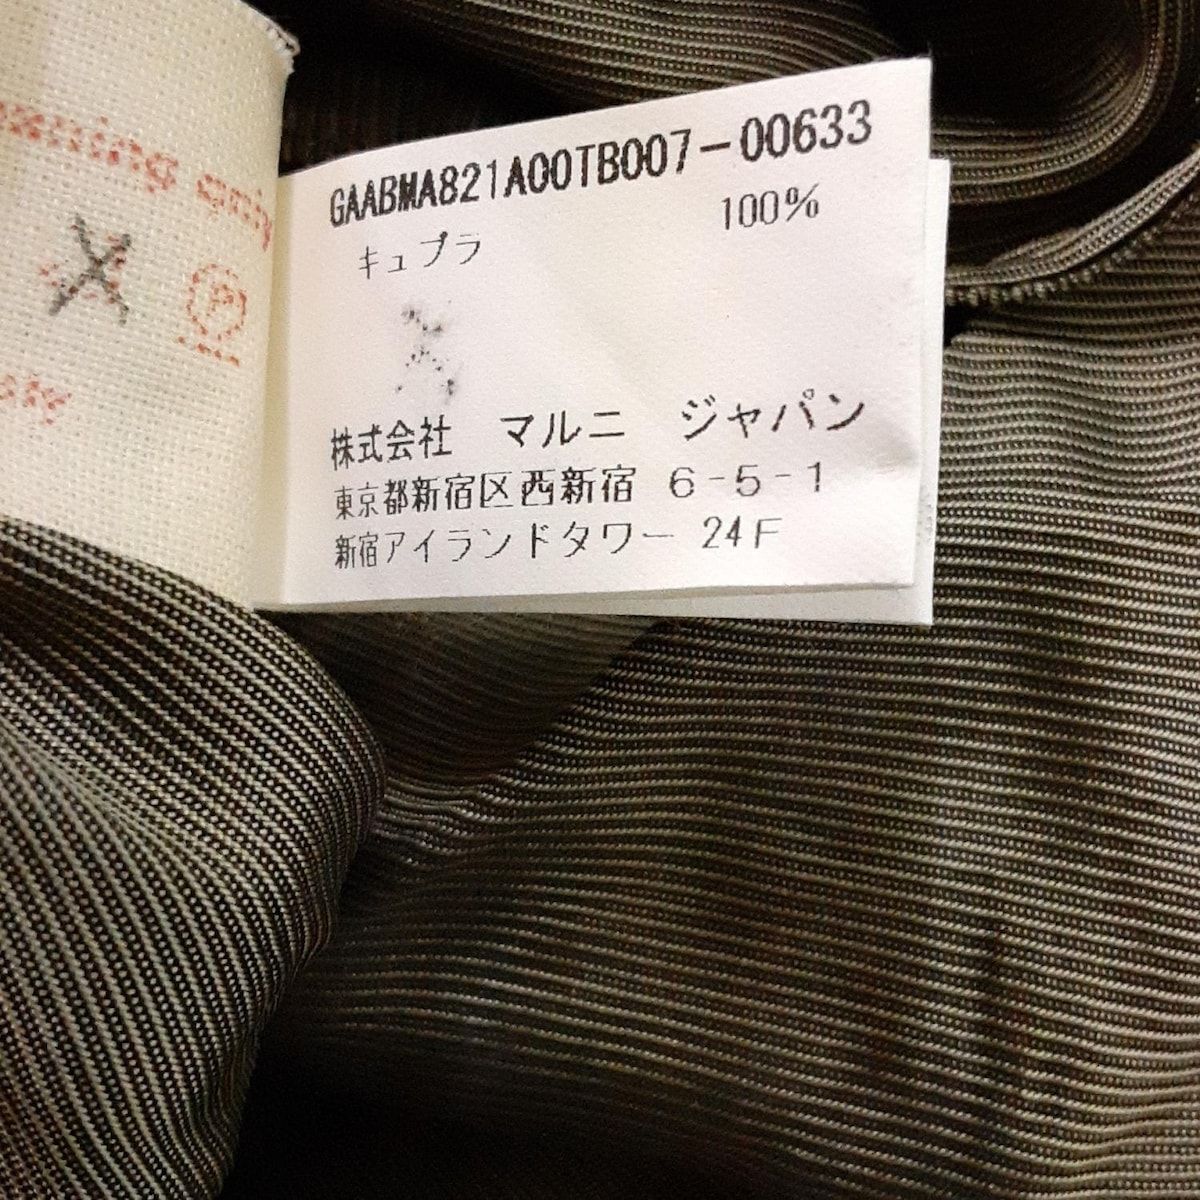 GAABMA821A00TB007-00633
キュプラ 100%
株式会社 マルニ ジャパン
東京都新宿区西新宿 6-5-1
新宿アイランドタワー 24F
only
P